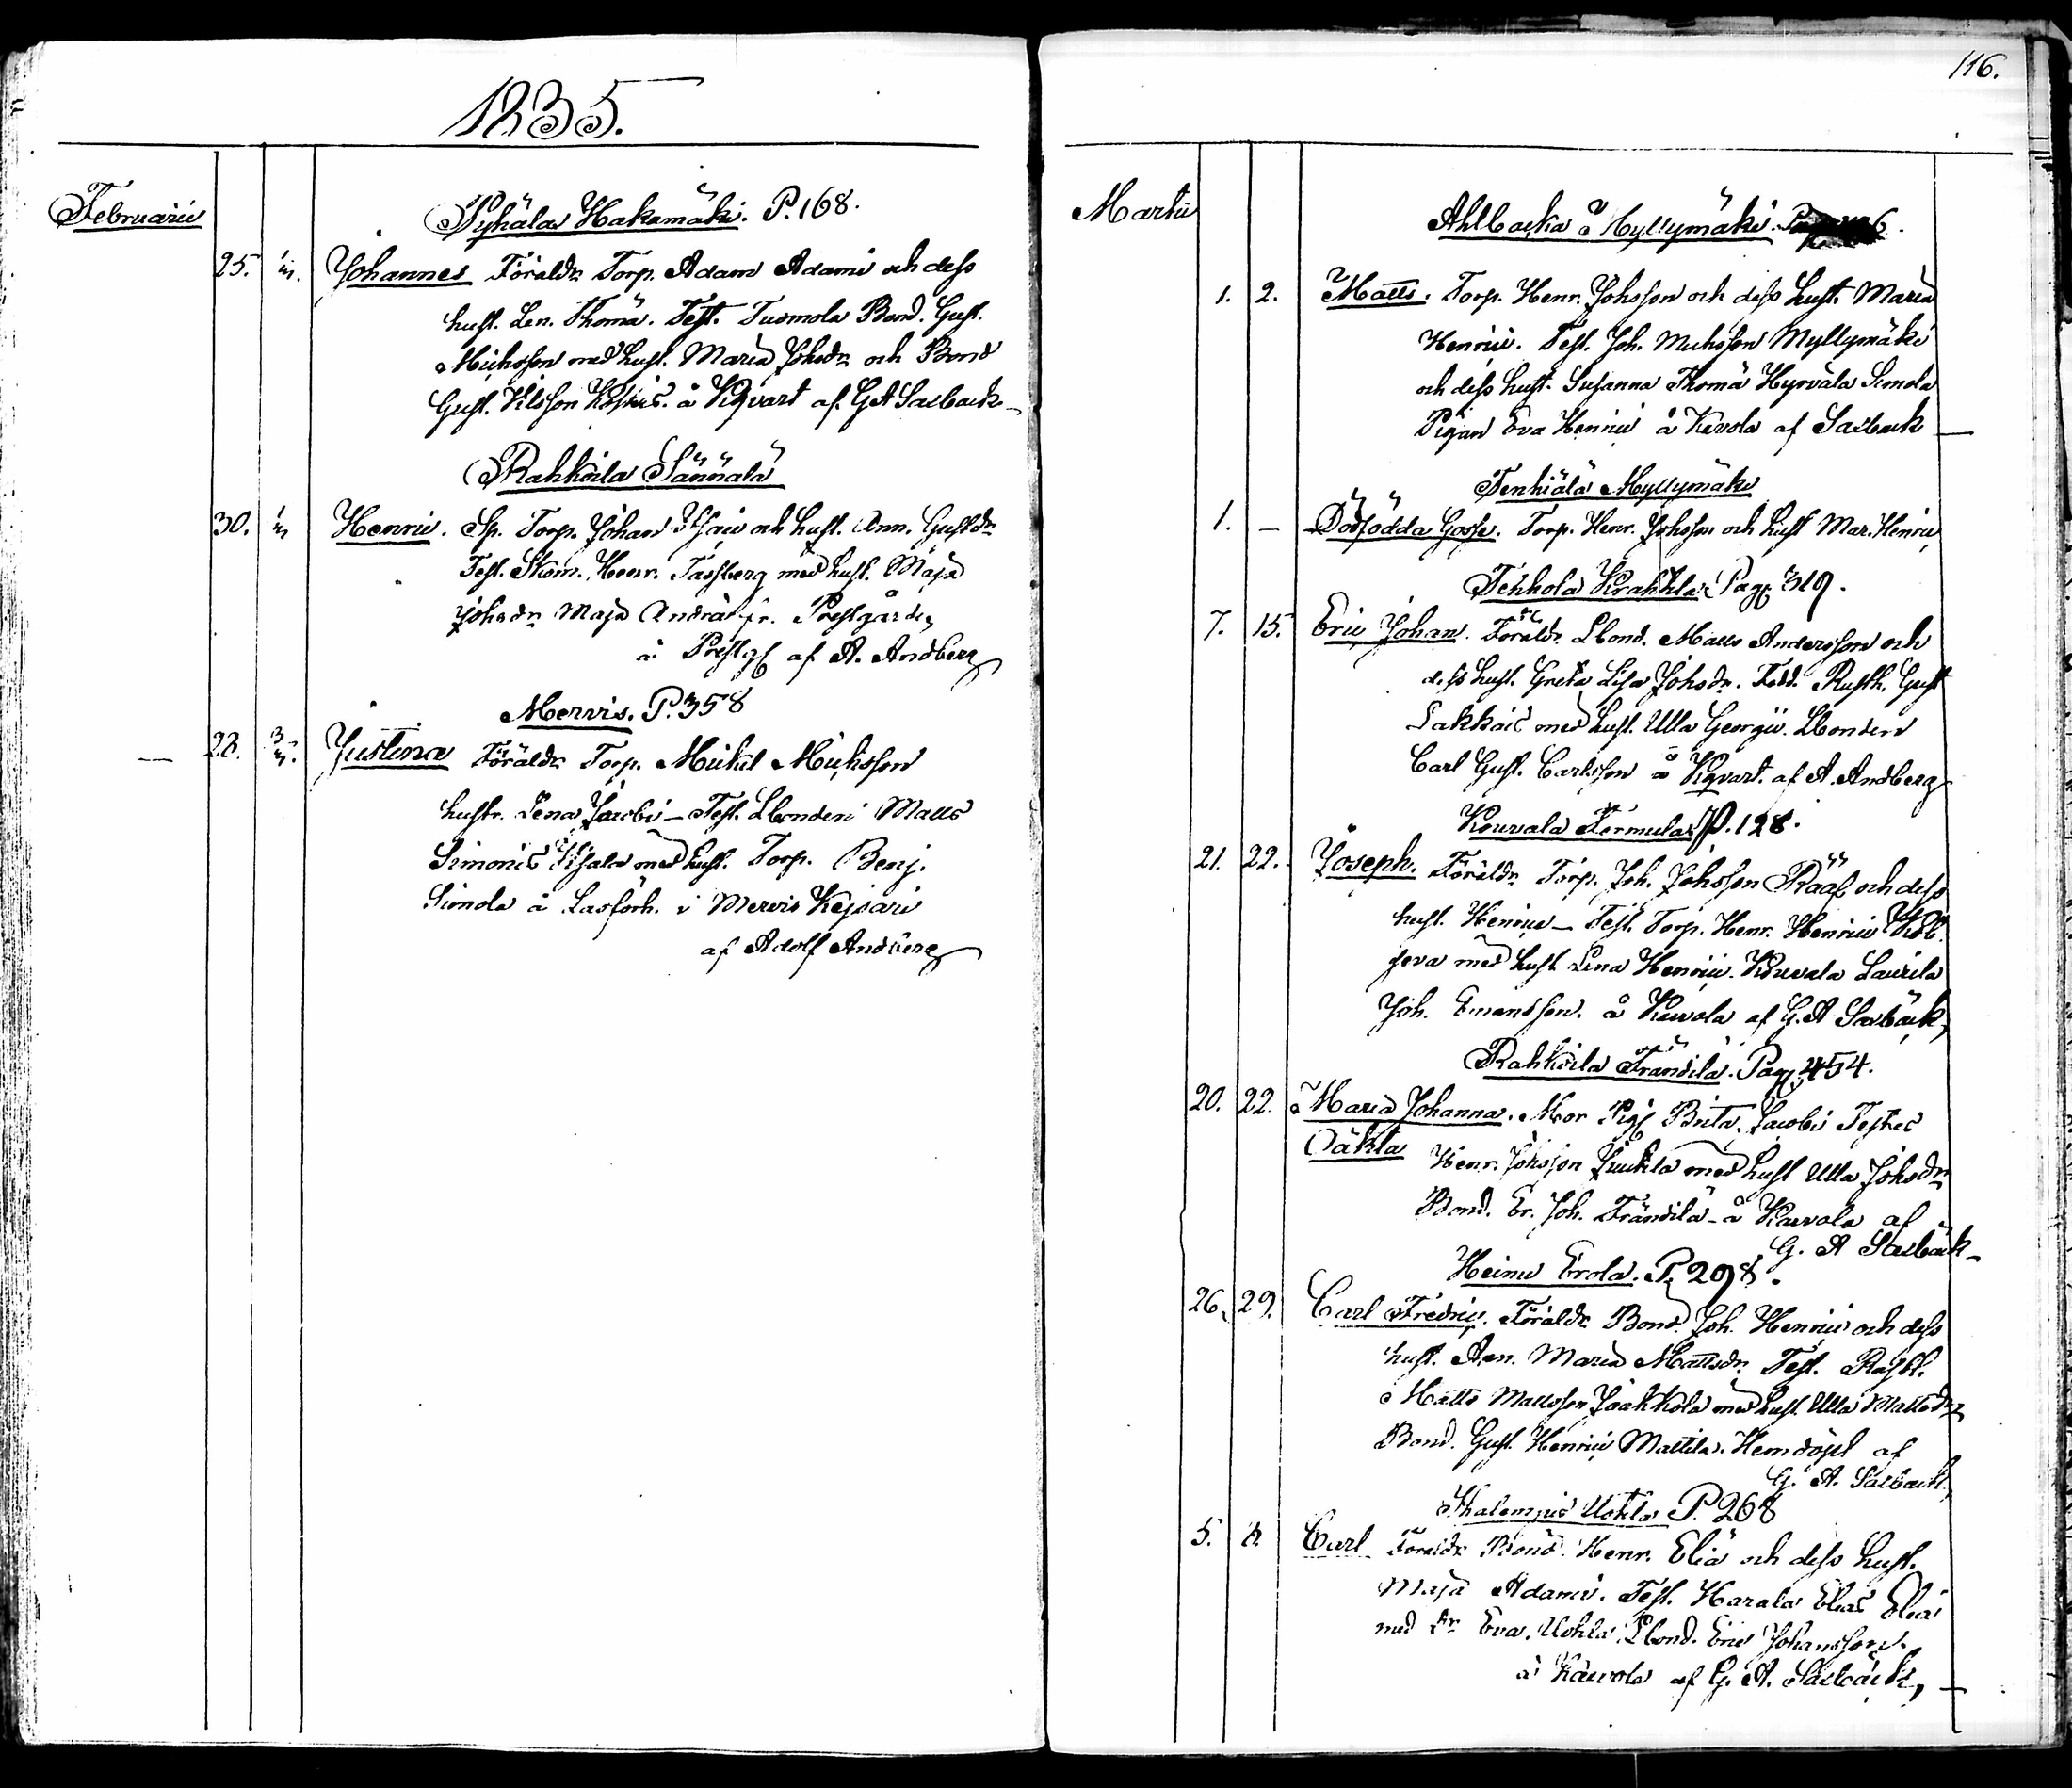 1835.
Februarii
Pyhälä Hakamäki. P. 168.
25. 1/m. Johannes Föräldr. Torp. Adam Adami och dess
hust. Len. Thomä. Test. Tuomola Bond. Gust.
Michsson med hust. Maria Johsdr. och Bond
Gust. Nilsson å Kqvart af. G A Sacback
Rahkoila Sännälä
30. 1/m Henric. Sp. Torp. Johan och hust. Ann. Gustdr.
Test. Skom. Henr. Tassberg med hust. Maja
Johsdr. Maja Andrä fr. Prestgårdz
å Prestg. af A. Andberg
Mervis. P. 358
— 28. 3/m. Justina Föräldr. Torp. Mickel Michsson
hustr. Lena Jacobi — Test. Lbonden Matts
Simonis med hust. Torp. Benj.
Simola å Läsförh. i Mervis Kejsari
af Adolf Andberg
116.
Martii
Ahlbacka å Myllymäki.
1. 2. Matts. Torp. Henr. Johsson och dess hust. Maria
Henrici. Test. Joh. Michsson Myllymäki
och dess hust. Susanna Thomä Hyrvälä Simola
Pigan Eva Henrici å Kevola af Sacback —
Tenhiälä Myllymäki
1. — Dödfödda Gosse. Torp. Henr. Johsson och hust Mar. Henrici,
Tehkola Krahkla Pag. 319.
7. 15. Eric Johan. Föräldr. Lbond. Matts Andersson och
dess hust. Greta Lisa Johsdr. Rusth. Gust
Lakkais med hust. Ulla Georgii. Lbonden
Carl Gust. Carlsson å Kqvart. af A. Andberg
Kouvala Förmula P. 128.
21. 22. Joseph. Föräldr. Torp. Joh. Johsson Rääf och dess
hust. Henrica — Test. Torp. Henr. Henrici
med hust Lena Henrici. Kouvala Laurila
Joh. Emansson. å Kaivola af G. A Sacbäck,
Rahkoila Frändilä. Pag. 454.
20. 22. Maria Johanna. Mor Pig. Brita Jacobi Testes
Oäkta Henr. Johsson Juukla med hust Ulla Johsdr.
Bond. Er. Joh. Frändilä — å Kaivola af
G. A Sacbäck —
Heinu Erola. P. 298.
26. 29. Carl Fredric. Föräldr. Bond. Joh. Henrici och dess
hust. Ann. Maria Mattsdr. Test. Rusth.
Matts Mattsson Jaakkola med hust. Ulla Mattsdr
Bond. Gust. Henrici Mattila. Hemdöpt af
G. A. Sacback,
Uotila P. 268
5. 8. Carl Föräldr. Bond. Henr. Eliä och dess hust.
Maja Adami. Test. Harala Elias Eliä
med dr. Eva. Lbond. Eric Johansson.
å Kaivola af G. A. Sacbäck, —